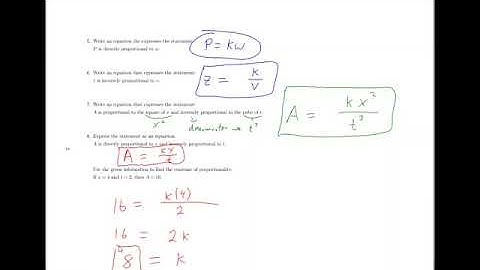 5. Write an equation the expresses the statement:
P is directly proportional to w.
P = kw
6. Write an equation that expresses the statement:
z is inversely proportional to v.
z = k/v
7. Write an equation that expresses the statement:
A is proportional to the square of x and inversely proportional to the cube of t.
x² denominator → t³
A = kx²/t³
8. Express the statement as an equation.
A is directly proportional to x and inversely proportional to t.
A = kx/t
Use the given information to find the constant of proportionality.
If x = 4 and t = 2, then A = 16.
16 = k(4)/2
16 = 2k
8 = k